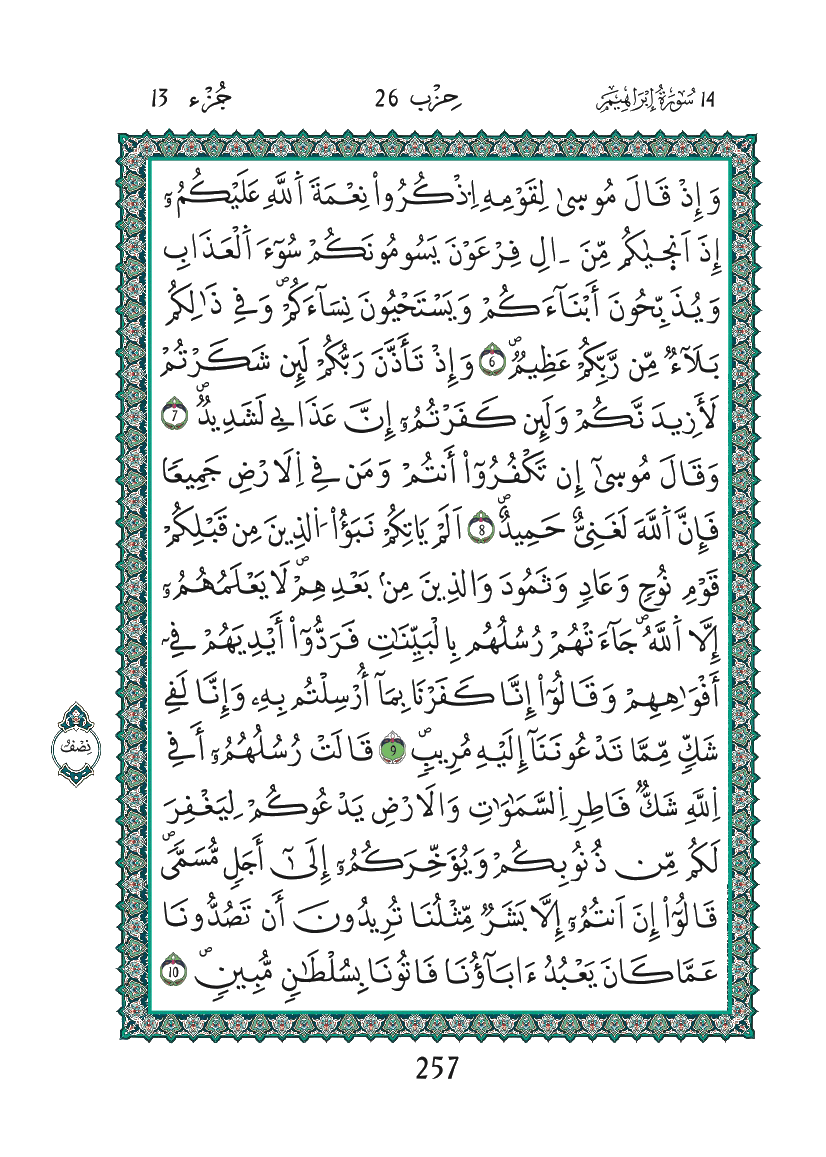 14 سُورَةُ إِبْرَاهِيمَ حِزْب 26 جُزْء 13
وَإِذْ قَالَ مُوسىٰ لِقَوْمِهِ اِذْكُرُواْ نِعْمَةَ اَ۬للَّهِ عَلَيْكُمُۥٓ
إِذَ اَنج۪يٰكُم مِّنَ اٰلِ فِرْعَوْنَ يَسُومُونَكُمْ سُوٓءَ اَ۬لْعَذَابِ
وَيُذَبِّحُونَ أَبْنَآءَكُمْ وَيَسْتَحْيُونَ نِسَآءَكُمْۖ وَفِے ذَٰلِكُم
بَلَآءٌ مِّن رَّبِّكُمْ عَظِيمٌۖ 6 وَإِذْ تَأَذَّنَ رَبُّكُمْ لَئِن شَكَرْتُمْ
لَأَزِيدَنَّكُمْ وَلَئِن كَفَرْتُمُۥٓ إِنَّ عَذَابِے لَشَدِيدٌۖ 7
وَقَالَ مُوسىٰٓ إِن تَكْفُرُوٓاْ أَنتُمْ وَمَن فِے اِ۬لَارْضِ جَمِيعاٗ
فَإِنَّ اَ۬للَّهَ لَغَنِيٌّ حَمِيدٌۖ 8 اَلَمْ يَاتِكُمْ نَبَؤُاْ اُ۬لذِينَ مِن قَبْلِكُمْ
قَوْمِ نُوحٖ وَعَادٖ وَثَمُودَ وَالذِينَ مِنۢ بَعْدِهِمْۖ لَا يَعْلَمُهُمُۥٓ
إِلَّا اَ۬للَّهُۖ جَآءَتْهُمْ رُسُلُهُم بِالْبَيِّنَٰتِ فَرَدُّوٓاْ أَيْدِيَهُمْ فِےٓ
أَفْوَٰهِهِمْ وَقَالُوٓاْ إِنَّا كَفَرْنَا بِمَآ أُرْسِلْتُم بِهِۦ وَإِنَّا لَفِے
شَكّٖ مِّمَّا تَدْعُونَنَآ إِلَيْهِ مُرِيبٖۖ 9 قَالَتْ رُسُلُهُمُۥٓ أَفِے
اِ۬للَّهِ شَكّٞ فَاطِرِ اِ۬لسَّمَٰوَٰتِ وَالَارْضِ يَدْعُوكُمْ لِيَغْفِرَ
لَكُم مِّن ذُنُوبِكُمْ وَيُؤَخِّرَكُمُۥٓ إِلَىٰٓ أَجَلٖ مُّسَمّىٗۖ
قَالُوٓاْ إِنَ اَنتُمُۥٓ إِلَّا بَشَرٞ مِّثْلُنَا تُرِيدُونَ أَن تَصُدُّونَا
عَمَّا كَانَ يَعْبُدُ ءَابَآؤُنَا فَاتُونَا بِسُلْطَٰنٖ مُّبِينٖۖ 10
نِصْفُ
257